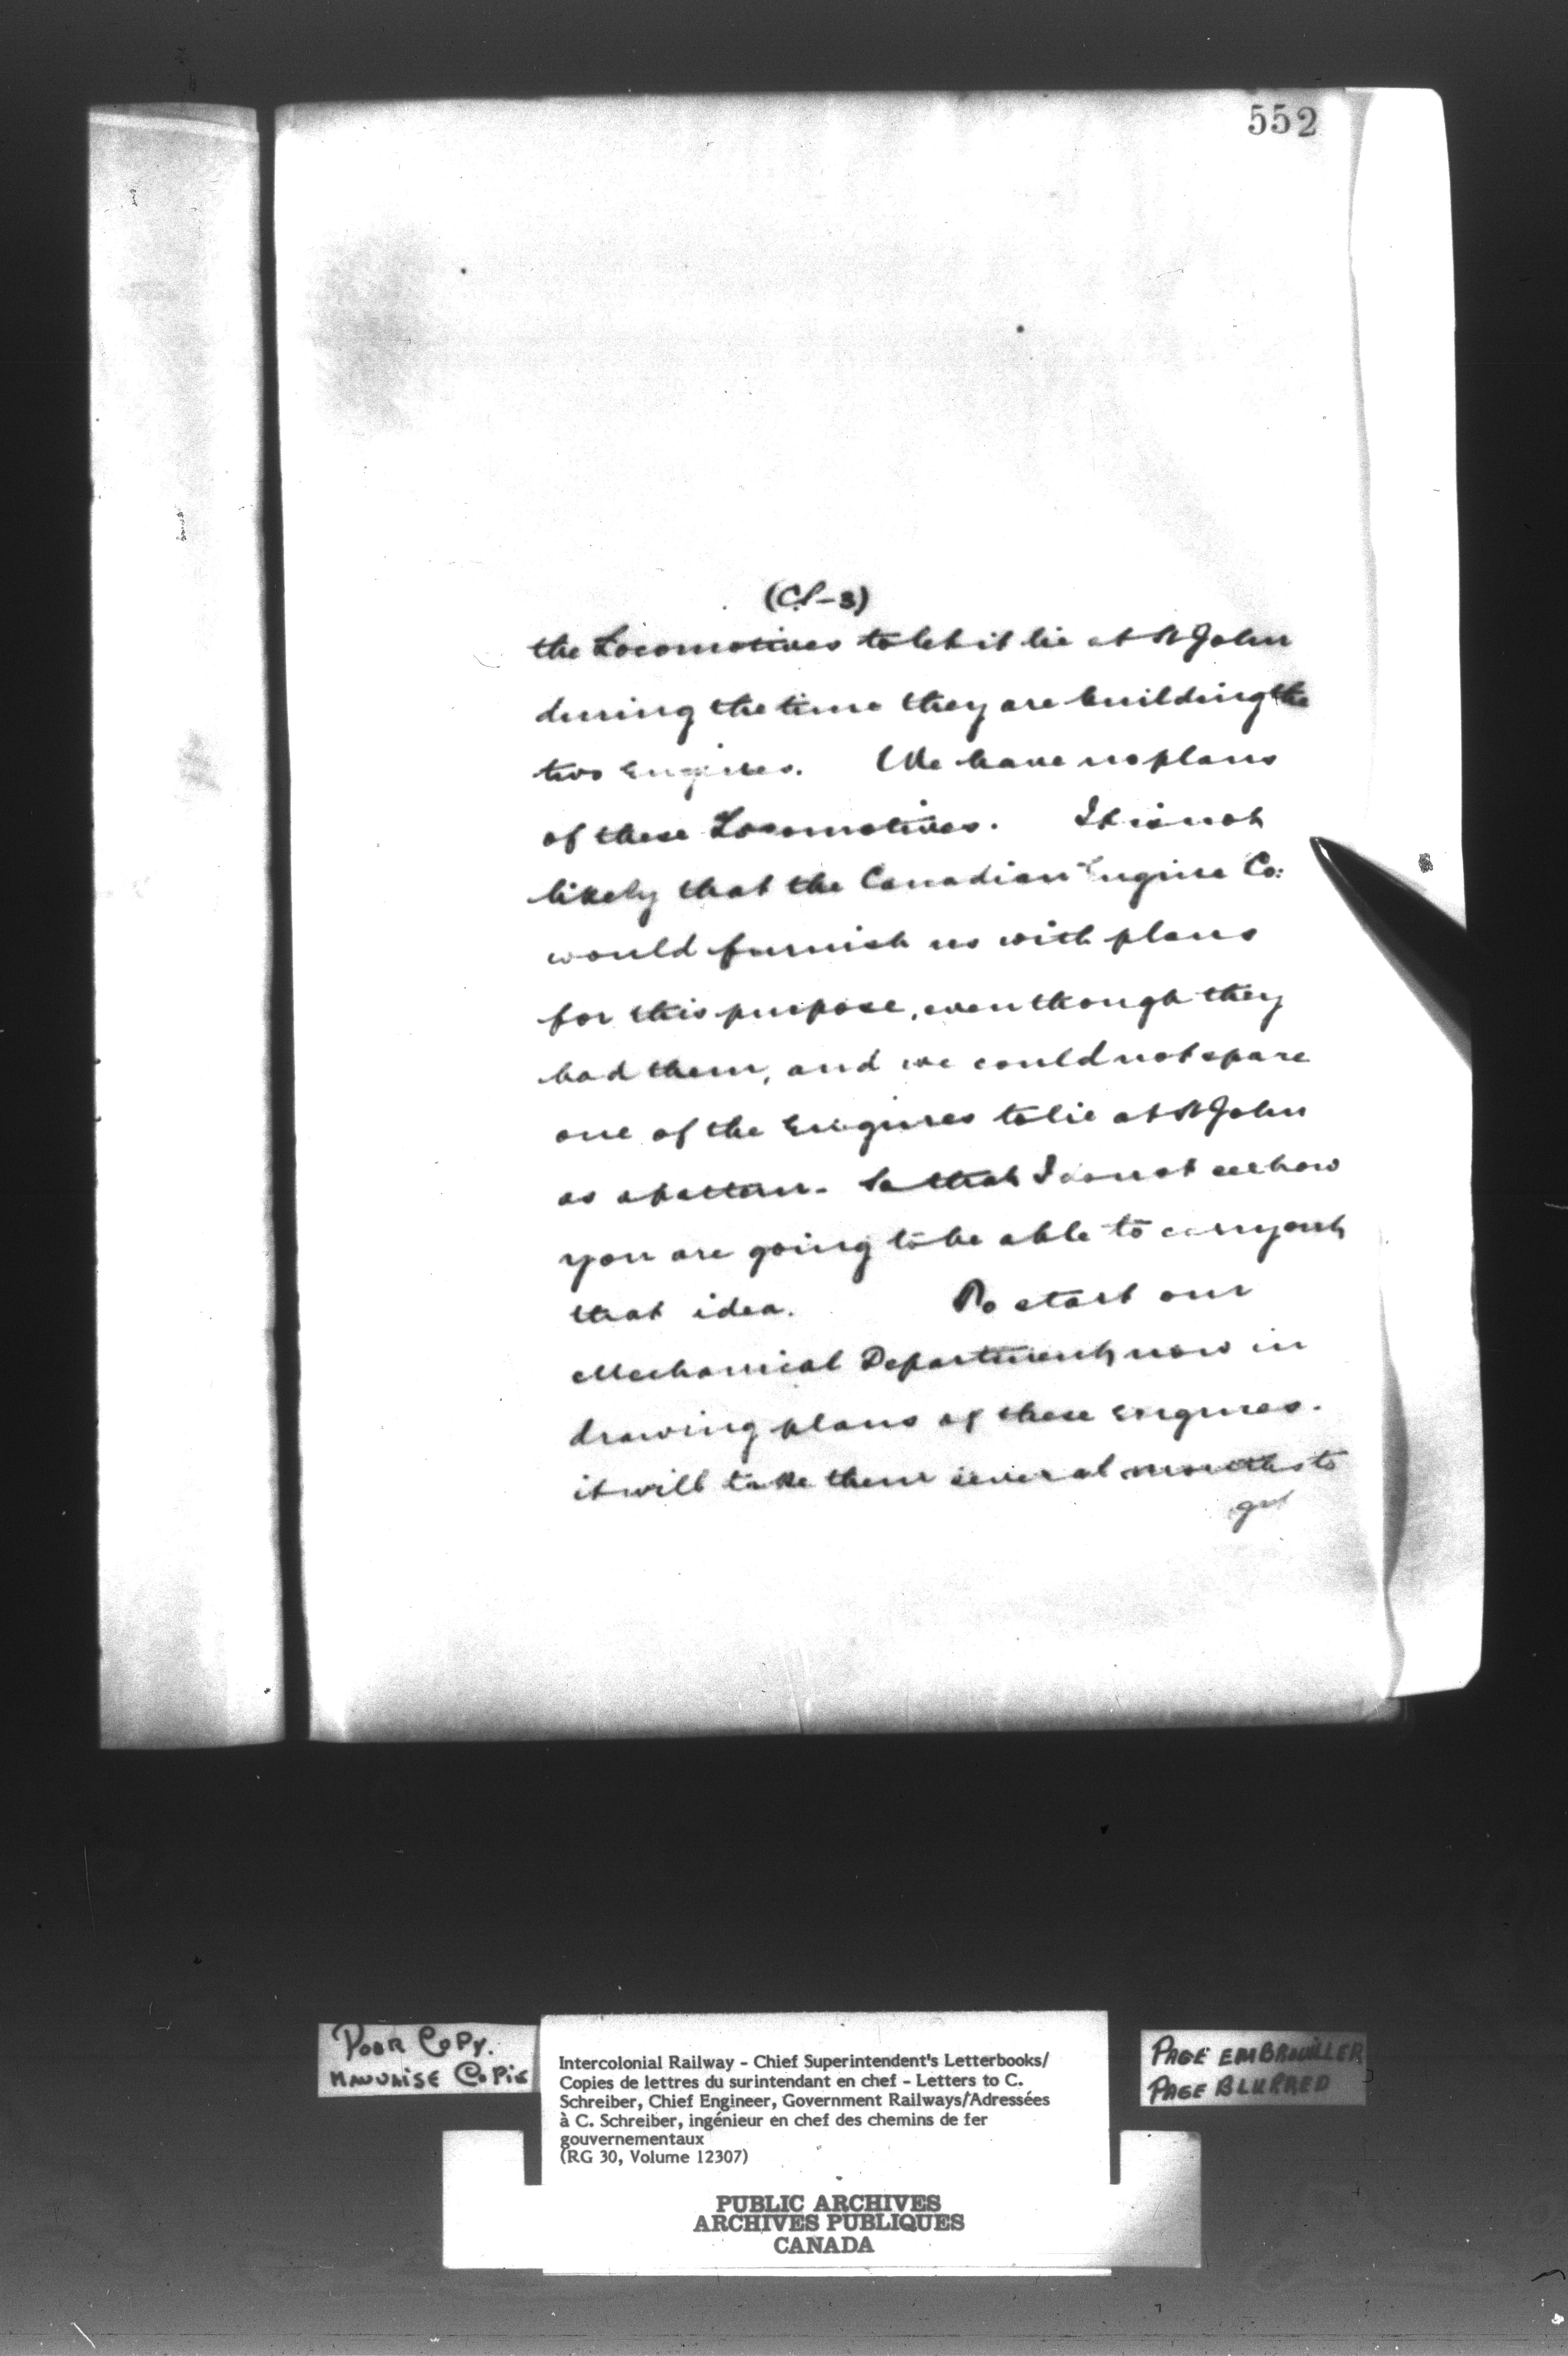 552
(C.S-3)
the Locomotives to let it lie at St John
during the time they are building the
two Engines. We have no plans
of these Locomotives. It is not
likely that the Canadian Engine Co:
would furnish us with plans
for this purpose, even though they
had them, and we could not spare
one of the Engines to lie at St John
as a pattern. So that I do not see how
you are going to be able to carry out
that idea. To start our
Mechanical Department now in
drawing plans of these engines.
it will take them several months to
get
POOR COPY.
MAUVAISE COPIE
Intercolonial Railway - Chief Superintendent's Letterbooks/
Copies de lettres du surintendant en chef - Letters to C.
Schreiber, Chief Engineer, Government Railways/Adressées
à C. Schreiber, ingénieur en chef des chemins de fer
gouvernementaux
(RG 30, Volume 12307)
PAGE EMBROUILLER
PAGE BLURRED
PUBLIC ARCHIVES
ARCHIVES PUBLIQUES
CANADA